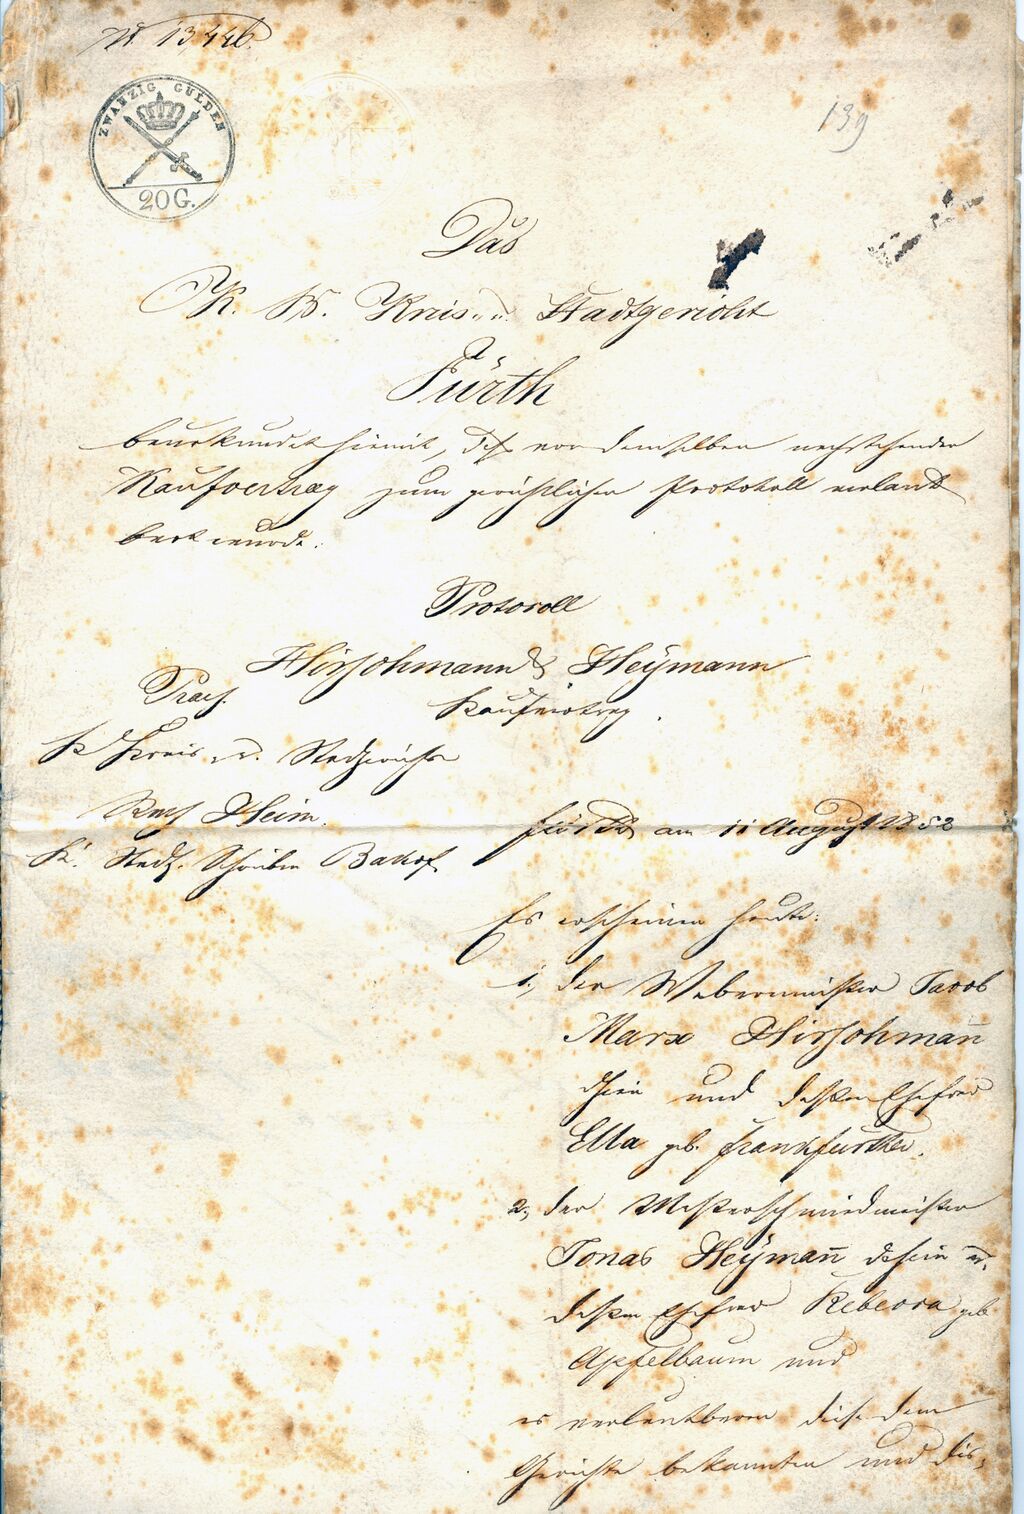 Nr. 13446.
ZWANZIG GULDEN
20 G.
139
Das
K. B. Kreis- u. Stadtgericht
Fürth
beurkundet hiemit, daß vor demselben nachstehender
Kaufvertrag zum gerichtlichen Protokoll verlaut
bart wurde.
Protocoll
Hirschmann & Heÿmann
Kaufvertrag.
Praes.
K Kreis u. Stadtgerichts
Rath Heim.
K. Stadtg. Schreiber
Fürth am 11 August 1852
Es erscheinen heute:
1., der Webermeister Jacob
Marx Hirschmañ
und dessen Ehefrau
Ella geb. Frankfurther.
2., der Messerschmiedmeister
Jonas Heÿmañ dahier u.
dessen Ehefrau Rebecca geb
Apfelbaum und
es verlautbaren diese dem
Gerichte bekannten und dis-